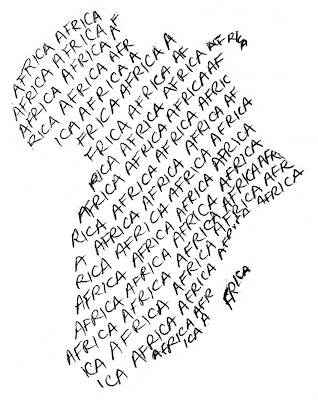 AFRICA AFRICA
AFRICA AFRICA F
AFRICA AFRICA A
RICA AFRICA AFR
ICA AFRICA A
FRICA AFRICA A
FRICA AFRICA AF
RICA AFRICA AFRICA AFRICA
AFRICA AFRICA AFRICA AF
RICA AFRICA AFRICA AFRIC
A AFRICA AFRICA AFRICA AF
RICA AFRICA AFRICA AFRICA
AFRICA AFRICA AFRICA AFRICA
AFRICA AFRICA AFRICA AFRICA
AFRICA AFRICA AFRICA AFRICA AFR
ICA AFRICA AFRICA AFRICA AFR
ICA AFRICA AFRICA AFRICA AFRICA
AFRICA AFR
ICA A
AFRICA